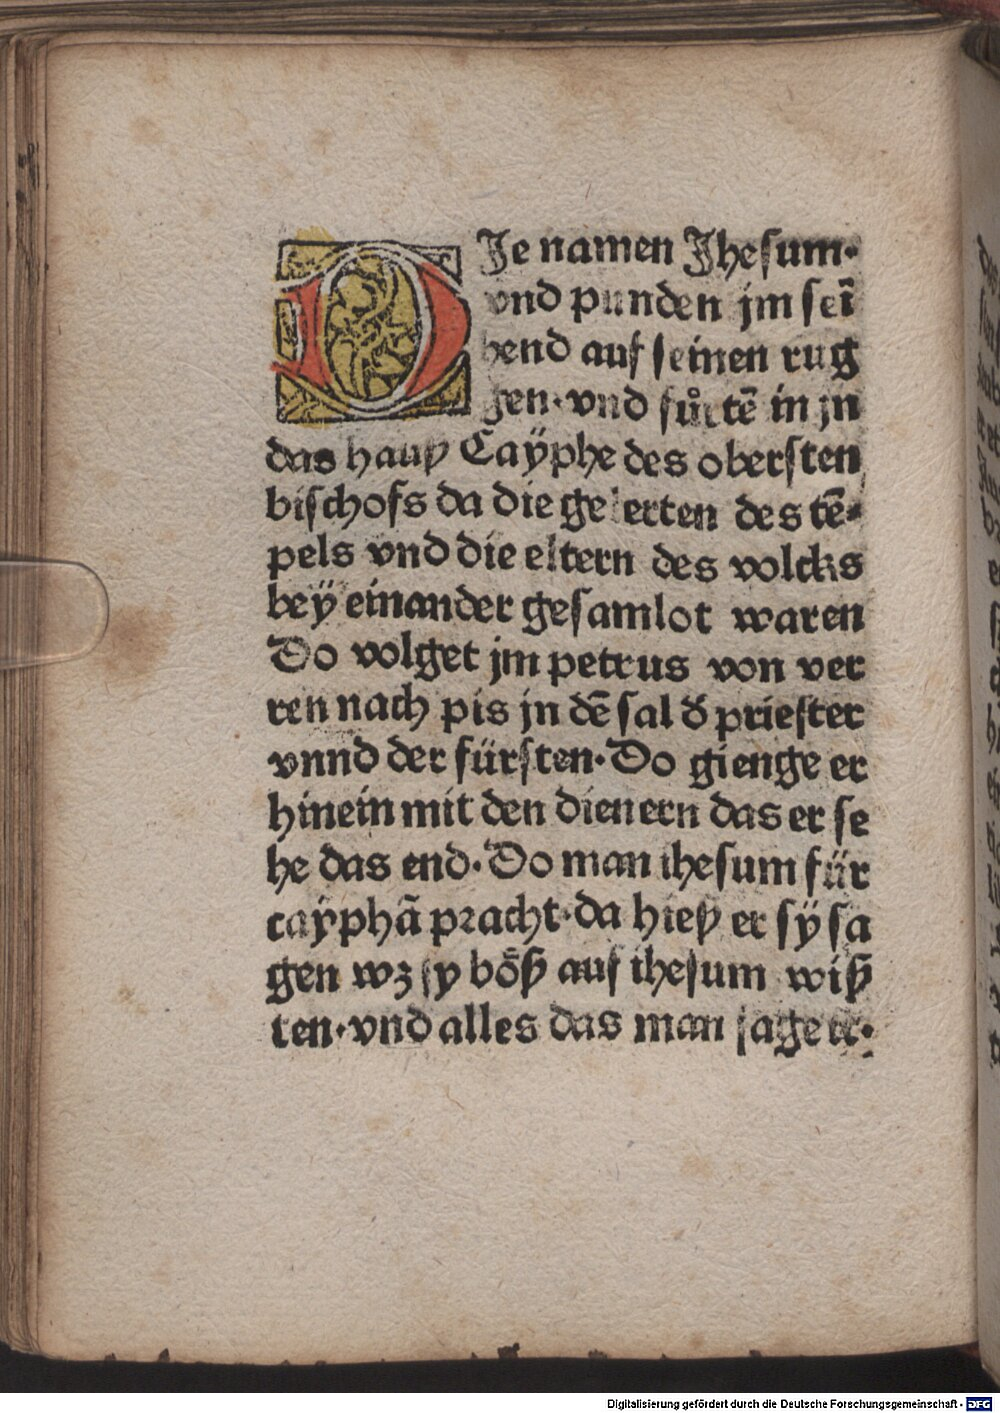 DJe namen Jhesum·
vnd punden jm sei̅
hend auf seinen rug
gen·vnd fůrte̅ in jn
das hauß Caÿphe des obersten
bischofs da die gelerten des te̅⸗
pels vnd die eltern des volcks
beÿ einander gesamlot waren
Do volget jm petrus von ver
ren nach pis jn de̅ sal d̕ priester
vnnd der fürsten·Do gienge er
hinein mit den dienern das er se
he das end·Do man ihesum für
caÿpha̅ pracht·da hieß er sÿ sa
gen wz sy bo̎ß auf ihesum wiß
ten·vnd alles das man sage er·
Digitalisierung gefördert durch die Deutsche Forschungsgemeinschaft - DFG